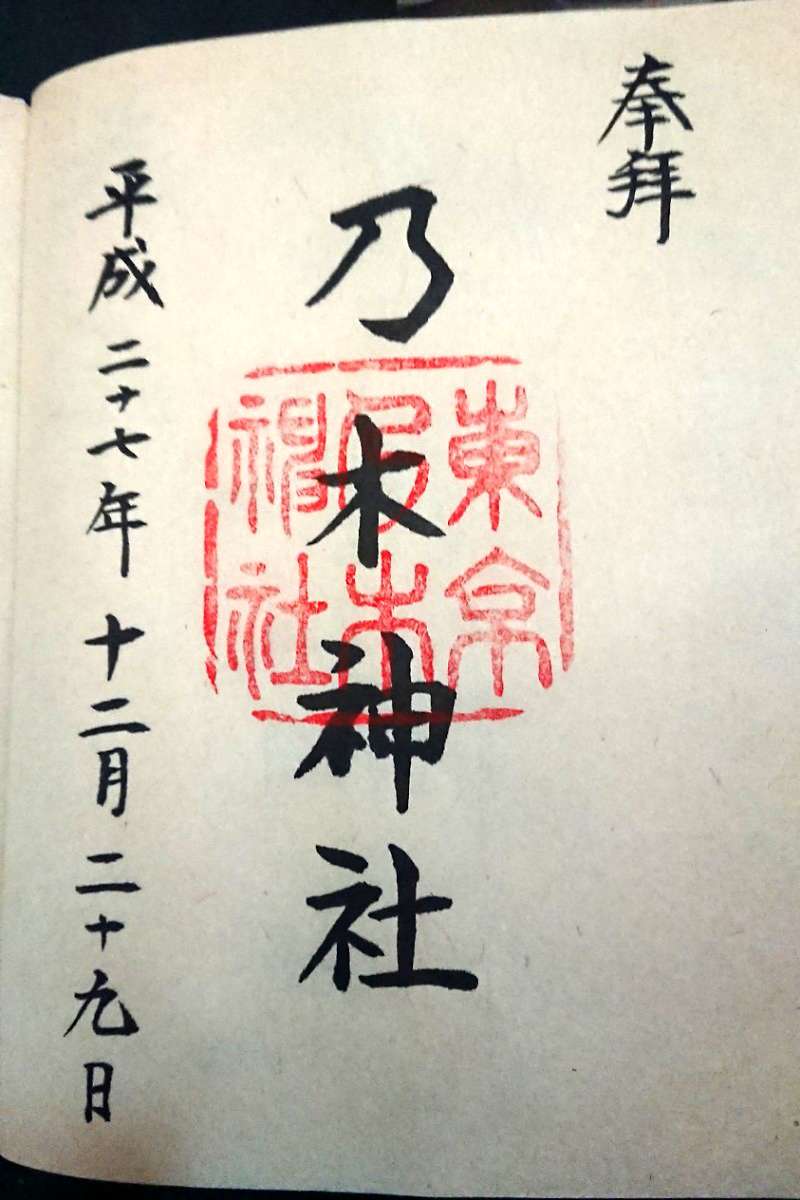 奉拝
乃木神社
東京
乃木
神社
平成二十七年十二月二十九日